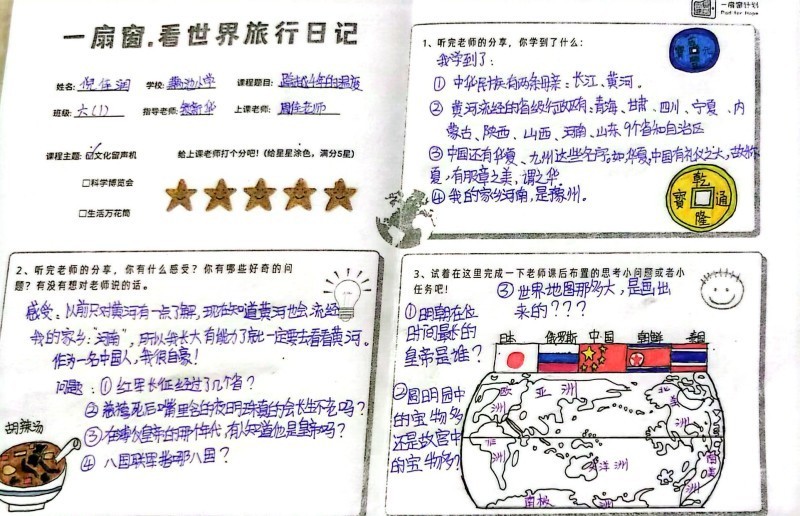 一扇窗计划
Port for Hope
一扇窗.看世界旅行日记
姓名:倪任润 学校: 小学 课程题目:
班级:六(1) 指导老师: 上课老师: 老师
课程主题:☑文化留声机
□科学博览会
□生活万花筒
给上课老师打个分吧!(给星星涂色,满分5星)
1、听完老师的分享,你学到了什么:
我学到了:
① 中华民族有两条母亲:长江、黄河。
② 黄河流经的省级行政有:青海、甘肃、四川、宁夏、内
蒙古、陕西、山西、河南、山东,9个省和自治区
③ 中国还有华夏、九州这些名字,如,华夏,中国有礼仪之大,故称
夏,有服章之美,谓之华
④ 我的家乡河南,是豫州。
乾隆通寶
2、听完老师的分享,你有什么感受?你有哪些好奇的问
题?有没有想对老师说的话。
感受:以前只对黄河有一点了解,现在知道黄河也会流经
我的家乡"河南",所以我长大有能力了就一定要去看看黄河。
作为一名中国人,我很自豪!
问题:①红军长征经过了几个省?
② 慈禧死后嘴里含的夜明珠真的会长生不老吗?
③ 在 皇帝的那个年代,有人知道他是皇帝吗?
④ 八国联军指哪八国?
胡辣汤
3、试着在这里完成一下老师课后布置的思考小问题或者小
任务吧!
①明朝在位
时间最长的
皇帝是谁?
②圆明园中
的宝物多
还是故宫中
的宝物多?
③ 世界地图那么大,是画出
来的???
日本 俄罗斯 中国 朝鲜 泰国
欧洲
亚洲
北美洲
非洲
大洋洲
南美洲
南极洲